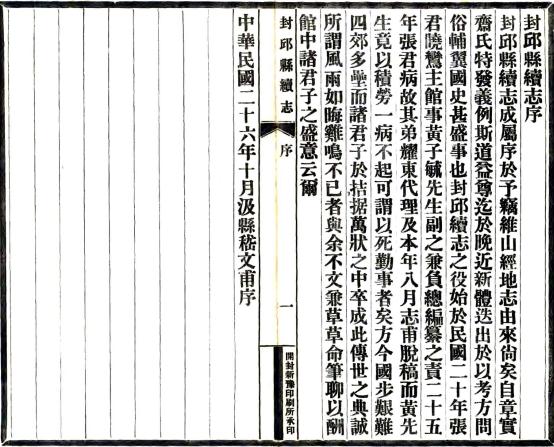 封邱縣續志序
封邱縣續志成屬序於予竊維山經地志由來尙矣自章實
齋氏特發義例斯道益尊迄於晚近新體迭出於以考方問
俗輔翼國史甚盛事也封邱續志之役始於民國二十年張
君嶢鸞主館事黃子毓先生副之兼負總編纂之責二十五
年張君病故其弟耀東代理及本年八月志甫脫稿而黃先
生竟以積勞一病不起可謂以死勤事者矣方今國步艱難
四郊多壘而諸君子於拮据萬狀之中卒成此傳世之典誠
所謂風雨如晦雞鳴不已者與余不文兼草草命筆聊以酬
館中諸君子之盛意云爾
封邱縣續志 序 一 開封新豫印刷所承印
中華民國二十六年十月汲縣嵇文甫序